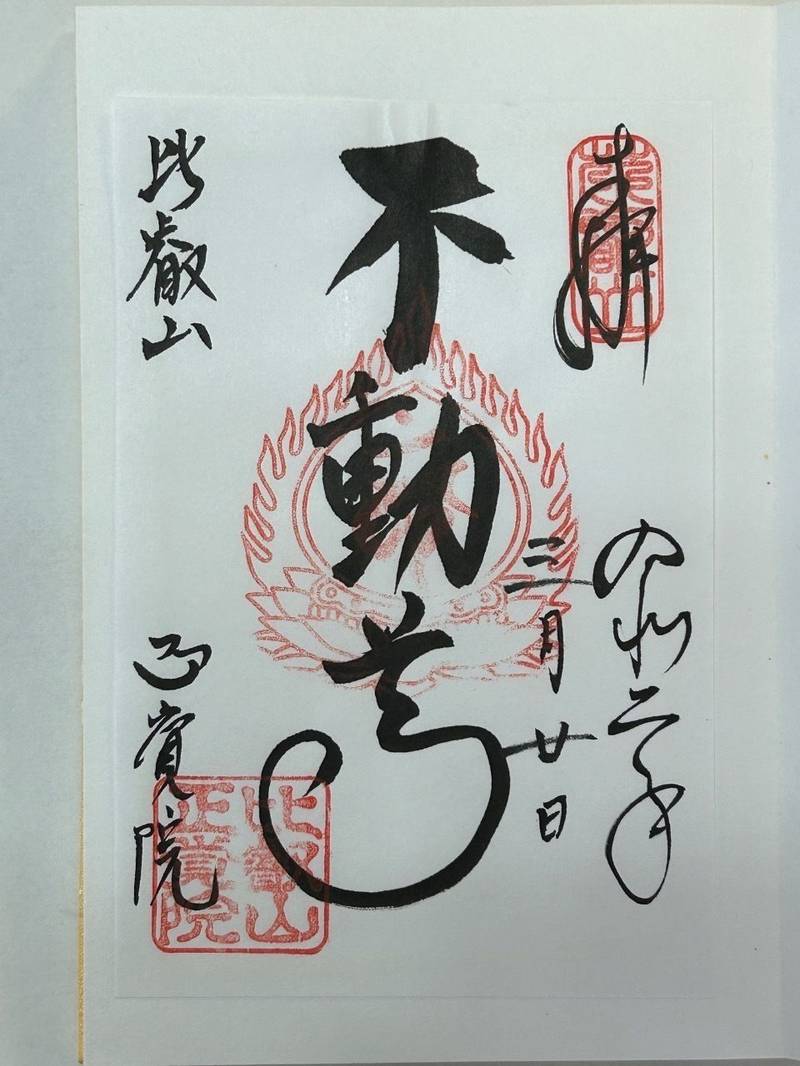 奉拝
令和二年
三月廿日
不動尊
比叡山
正覚院
比叡山
正覚院